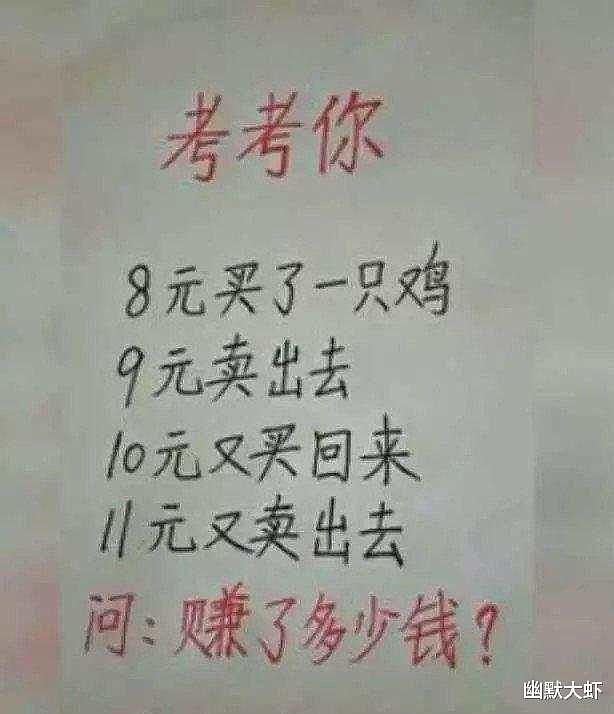 考考你
8元买了一只鸡
9元卖出去
10元又买回来
11元又卖出去
问:赚了多少钱?
幽默大虾